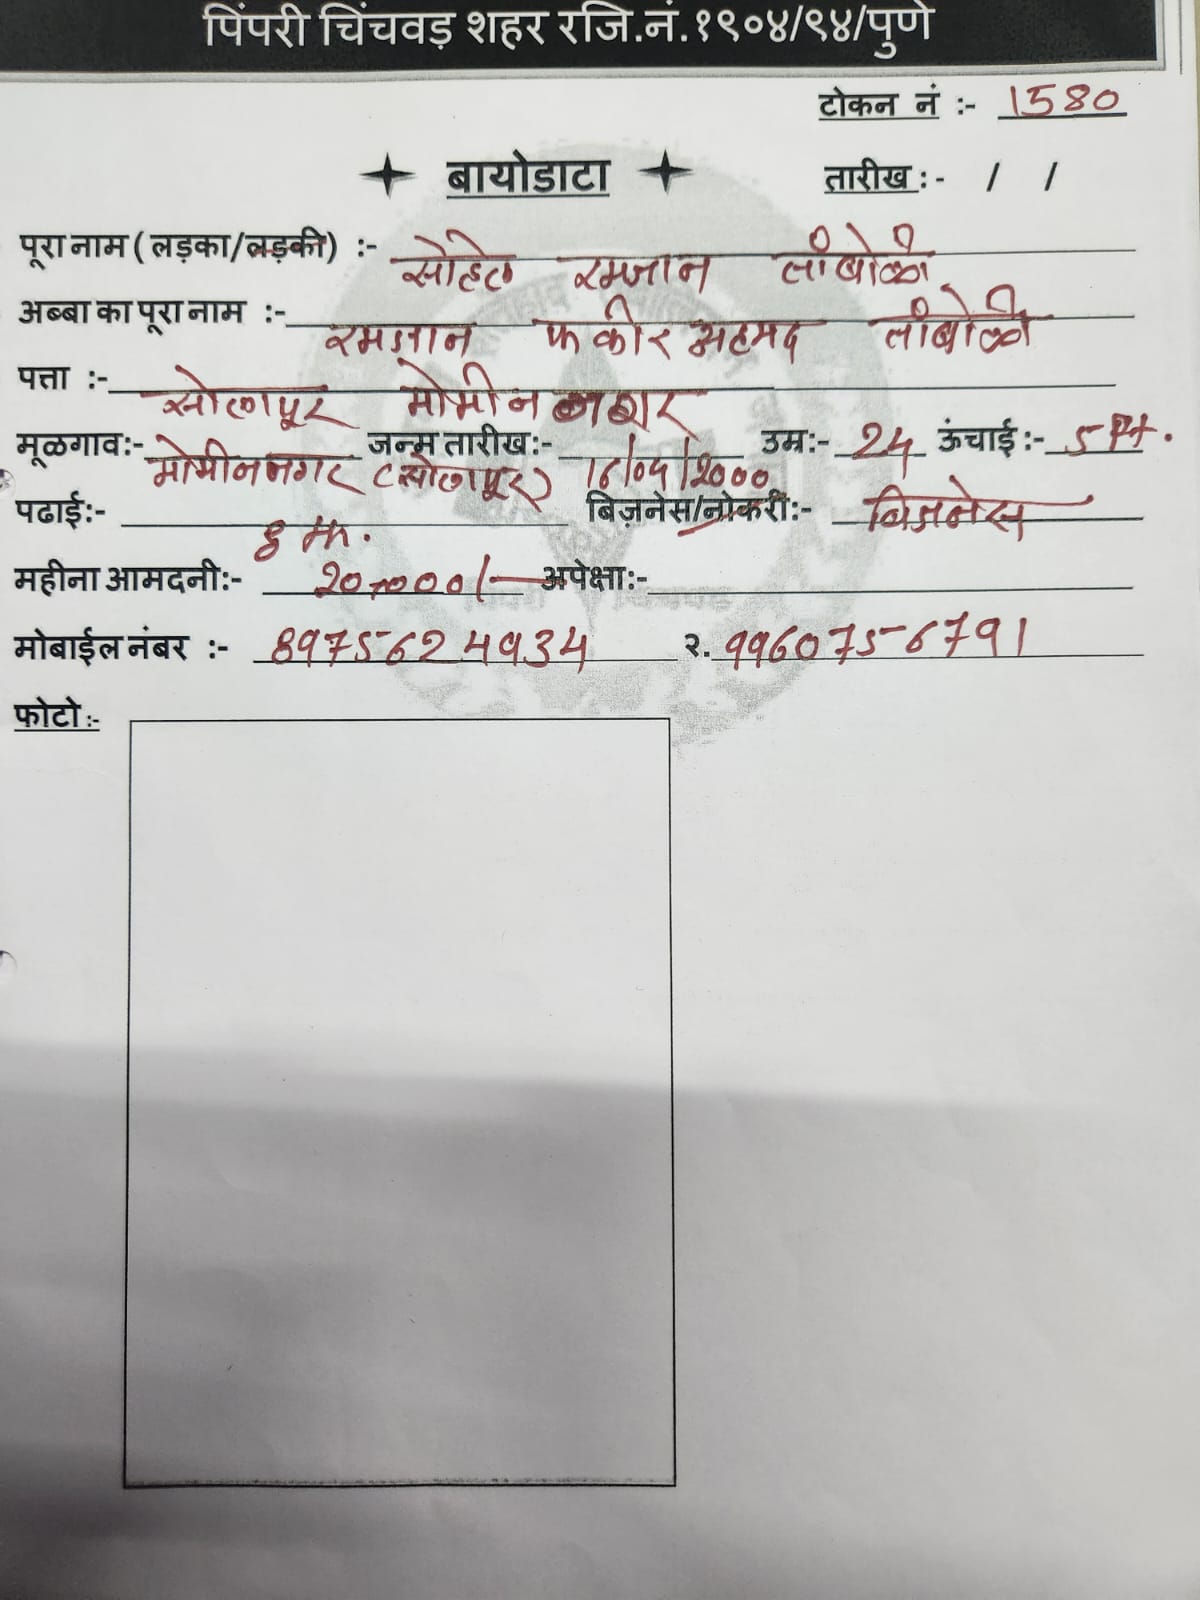 पिंपरी चिंचवड़ शहर रजि.नं.१९०४/९४/पुणे
टोकन नं :- 1580
बायोडाटा
तारीख :- / /
पूरा नाम ( लड़का/लड़की) :- सोहेल रमजान तांबोळी
अब्बा का पूरा नाम :- रमजान फकीर अहमद तांबोळी
पत्ता :- सोलापूर मोमीन नगर
मूळगाव:- मोमीन नगर (सोलापूर) जन्म तारीख:- 16/04/2000 उम्र:- 24 ऊंचाई :- 5 Ft.
पढाई:- 8 th. बिज़नेस/नोकरी:- बिजनेस
महीना आमदनी:- 20,000/- अपेक्षा:-
मोबाईल नंबर :- 8975624934 २.9960756791
फोटो :-